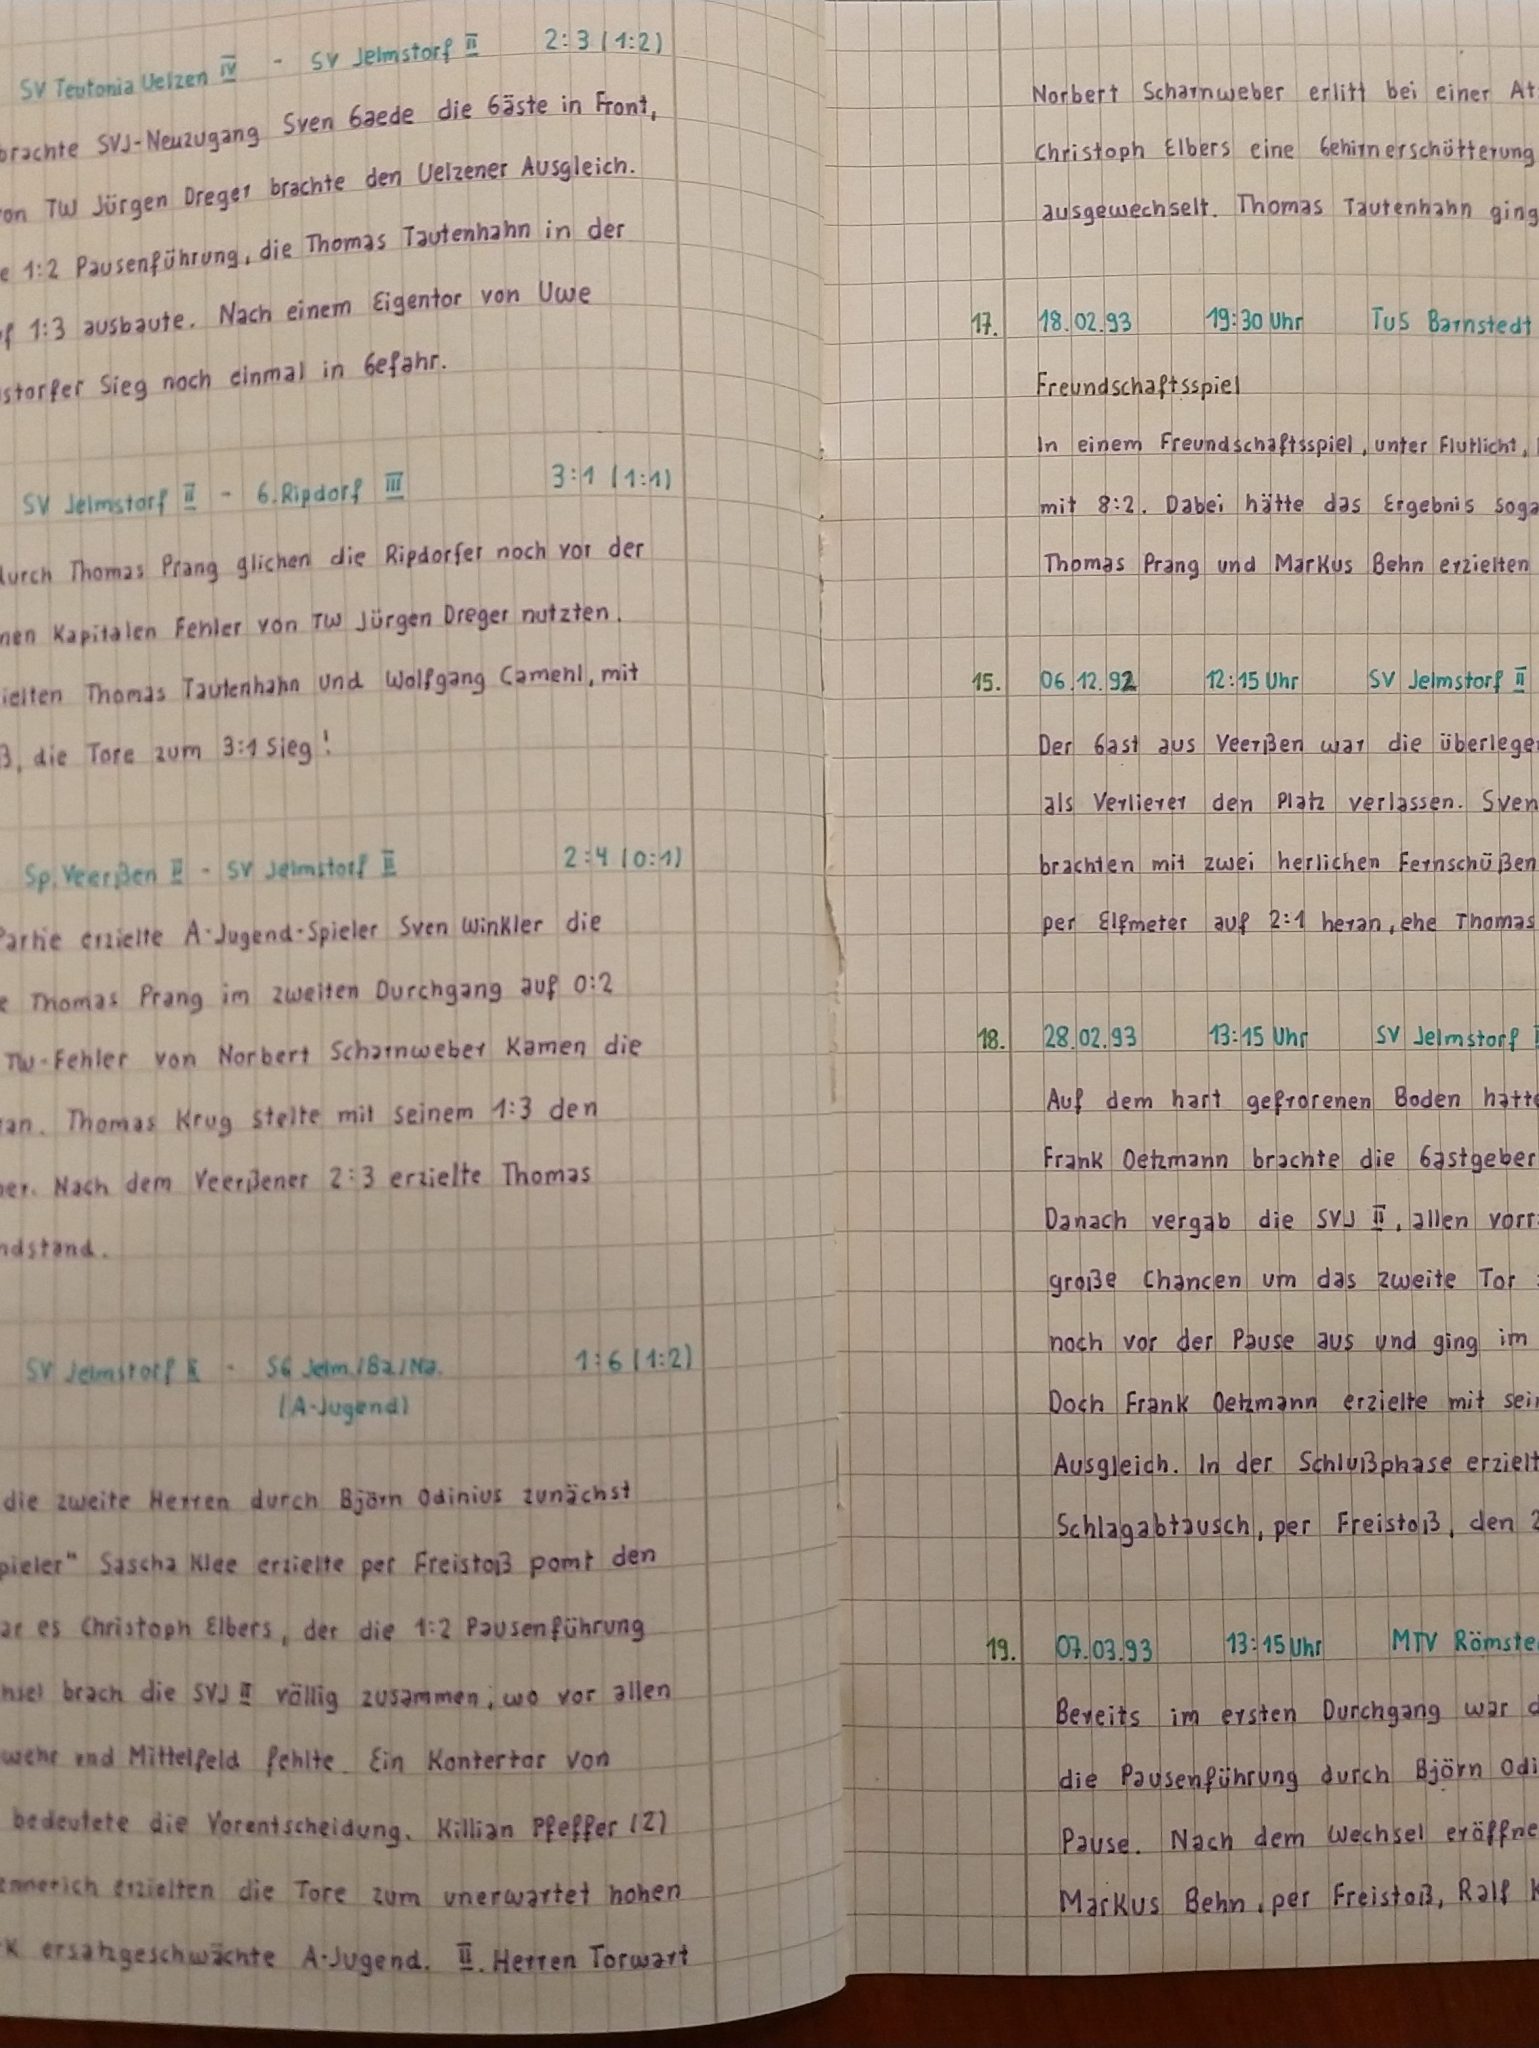 SV Teutonia Uelzen IV - SV Jelmstorf II 2:3 (1:2)
brachte SVJ-Neuzugang Sven Gaede die Gäste in Front,
von TW Jürgen Dreger brachte den Uelzener Ausgleich.
e 1:2 Pausenführung, die Thomas Tautenhahn in der
f 1:3 ausbaute. Nach einem Eigentor von Uwe
storfer Sieg noch einmal in Gefahr.
SV Jelmstorf II - G. Ripdorf III 3:1 (1:1)
durch Thomas Prang glichen die Ripdorfer noch vor der
nen Kapitalen Fehler von TW Jürgen Dreger nutzten.
ielten Thomas Tautenhahn und Wolfgang Camehl, mit
ß, die Tore zum 3:1 Sieg!
Sp. Veerßen II - SV Jelmstorf II 2:4 (0:1)
Partie erzielte A-Jugend-Spieler Sven Winkler die
e Thomas Prang im zweiten Durchgang auf 0:2
TW-Fehler von Norbert Scharnweber Kamen die
ran. Thomas Krug stelte mit seinem 1:3 den
er. Nach dem Veerßener 2:3 erzielte Thomas
ndstand.
SV Jelmstorf II - SG Jelm./Ba./Na. 1:6 (1:2)
(A-Jugend)
die zweite Herren durch Björn Odinius zunächst
pieler" Sascha Klee erzielte per Freistoß pomt den
ar es Christoph Elbers, der die 1:2 Pausenführung
hsel brach die SVJ II völlig zusammen, wo vor allen
wehr und Mittelfeld fehlte. Ein Kontertor von
bedeutete die Vorentscheidung. Killian Pfeffer (2)
ennerich erzielten die Tore zum unerwartet hohen
rk ersatzgeschwächte A-Jugend. II. Herren Torwart
Norbert Scharnweber erlitt bei einer At
Christoph Elbers eine Gehirnerschütterung
ausgewechselt. Thomas Tautenhahn ging
17. 18.02.93 19:30 Uhr TuS Barnstedt
Freundschaftsspiel
In einem Freundschaftsspiel, unter Flutlicht,
mit 8:2. Dabei hätte das Ergebnis soga
Thomas Prang und Markus Behn erzielten
15. 06.12.92 12:15 Uhr SV Jelmstorf II
Der Gast aus Veerßen war die überlege
als Verlierer den Platz verlassen. Sven
brachten mit zwei herlichen Fernschüßen
per Elfmeter auf 2:1 heran, ehe Thomas
18. 28.02.93 13:15 Uhr SV Jelmstorf
Auf dem hart gefrorenen Boden hatte
Frank Oetzmann brachte die Gastgeber
Danach vergab die SVJ II, allen vorr
große Chancen um das zweite Tor
noch vor der Pause aus und ging im
Doch Frank Oetzmann erzielte mit sein
Ausgleich. In der Schlußphase erzielt
Schlagabtausch, per Freistoß, den 2
19. 07.03.93 13:15 Uhr MTV Römste
Bereits im ersten Durchgang war d
die Pausenführung durch Björn Odi
Pause. Nach dem Wechsel eröffne
Markus Behn, per Freistoß, Ralf K